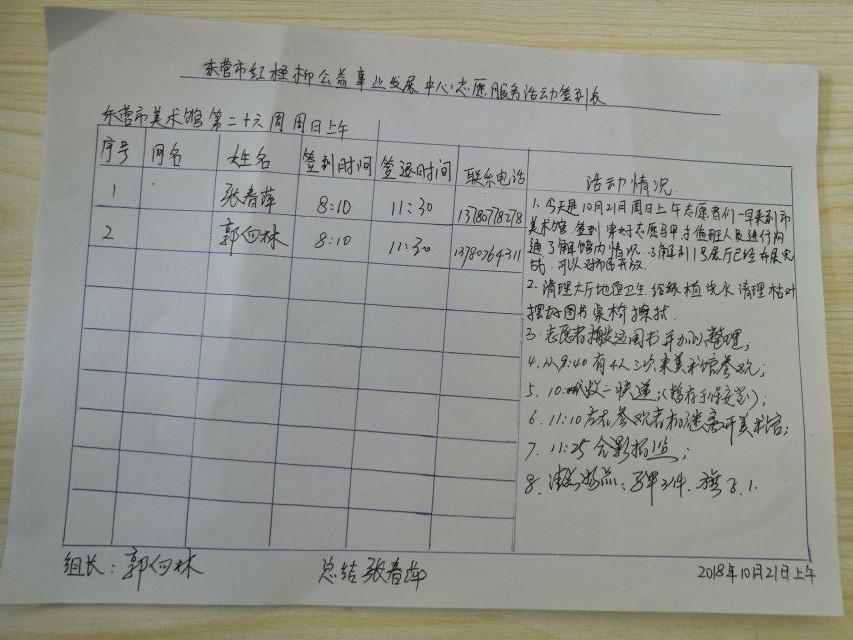 东营市红柽柳公益事业发展中心志愿服务活动签到表
东营市美术馆 第二十六周 周日上午
序号 网名 姓名 签到时间 签退时间 联系电话 活动情况
1 张春萍 8:10 11:30 13780778278
2 郭向林 8:10 11:30 13780764311
1. 今天是10月21日周日上午志愿者们一早来到市
美术馆 签到 穿好志愿马甲 与值班人员进行沟
通了解馆内情况. 了解到1号展厅已经布展完
可以对市民开放.
2. 清理大厅地面卫生 给绿植浇水 清理枯叶
摆好图书桌椅擦拭.
3. 志愿者搬运图书并加以整理;
4. 从9:40有4人三次来美术馆参观;
5. 10: 收二快递;(暂存于保安室);
6. 11:10左右参观者相继离开美术馆;
7. 11:25合影拍照;
8. 清点物品: 马甲 件. 旗子.1.
组长: 郭向林 总结 张春萍 2018年10月21日上午